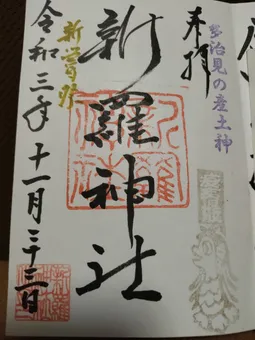 奉拝
多治見の産土神
新羅神社
新嘗祭
令和三年十一月二十三日